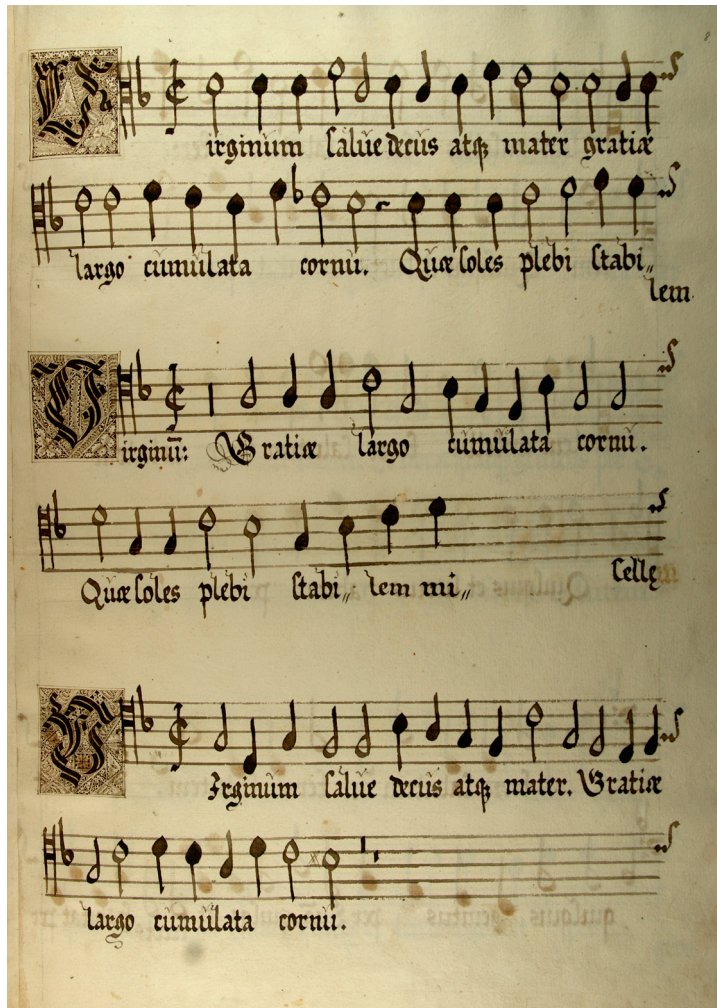 Virginum salue decus atq; mater gratiæ
largo cumulata cornu. Quæ soles plebi stabi„
lem
Virginū: Gratiæ largo cumulata cornu.
Quæ soles plebi stabi„ lem mi„
selle
VIrginum salue decus atq; mater. Gratiæ
largo cumulata cornu.